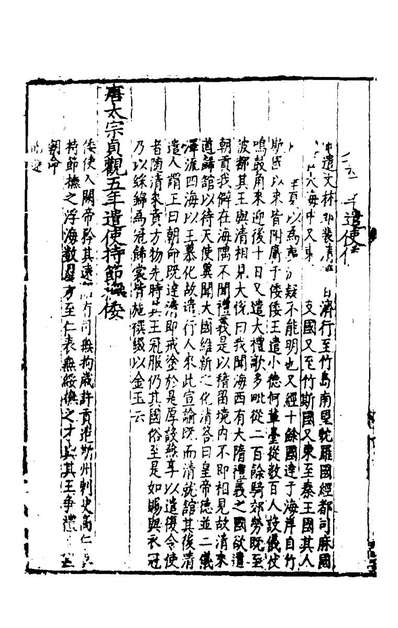 年遣使
遣文林郎裴清 百濟行至竹島南望䏿羅國經都司麻國
大海中又東 支國又至竹斯國又東至秦王國其人
夏以為夷洲疑不能明也又經十餘國達于海岸自竹
斯國以東皆附屬于倭倭王遣小德何輩臺從數百人設儀仗
鳴鼓角來迎後十日又遣大禮歌多毗從二百餘騎郊勞既至
彼都其王與清相見大悅曰我聞海西有大隋禮義之國故遣
朝貢我僻在海隅不聞禮義是以稽留境内不即相見故清來
道歸館以待天使冀聞大國維新之化清答曰皇帝德並二儀
澤流四海以王慕化故遣行人來此宣諭既而清就館其後清
遣人謂王曰朝命既達請即戒塗於是厚設燕享以遣復令使
者隨清來貢方物先時其王冠服仍其國俗至是始賜與衣冠
乃以綵錦為冠飾裳皆施襈綴以金玉云
唐太宗貞觀五年遣使持節撫倭
倭使入關帝矜其遠詔有司無拘歲許貢遣新州刺史高仁
持節撫之浮海數月方至仁表無綏撫之才與其王爭禮
朝命
而還